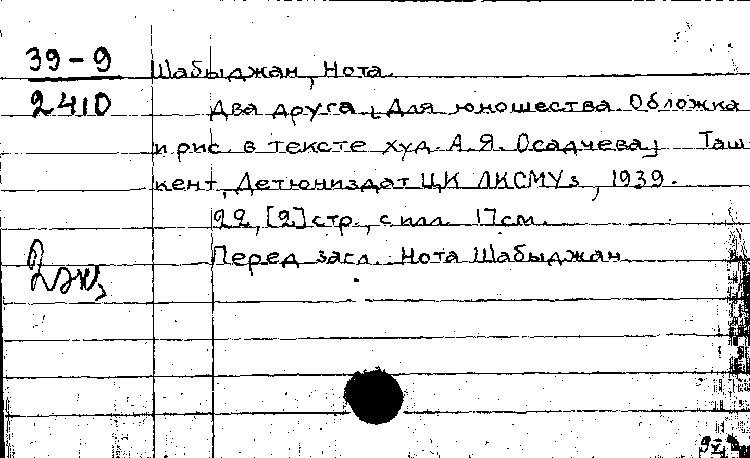 39-9
2410
Шабыджан, Нота.
Два друга. [Для юношества. Обложка
и рис. в тексте худ. А.Я. Осадчева] Таш
кент, Детюниздат ЦК ЛКСМУз, 1939.
22, [2] стр., с илл. 17 см.
Перед загл.: Нота Шабыджан
2 экз